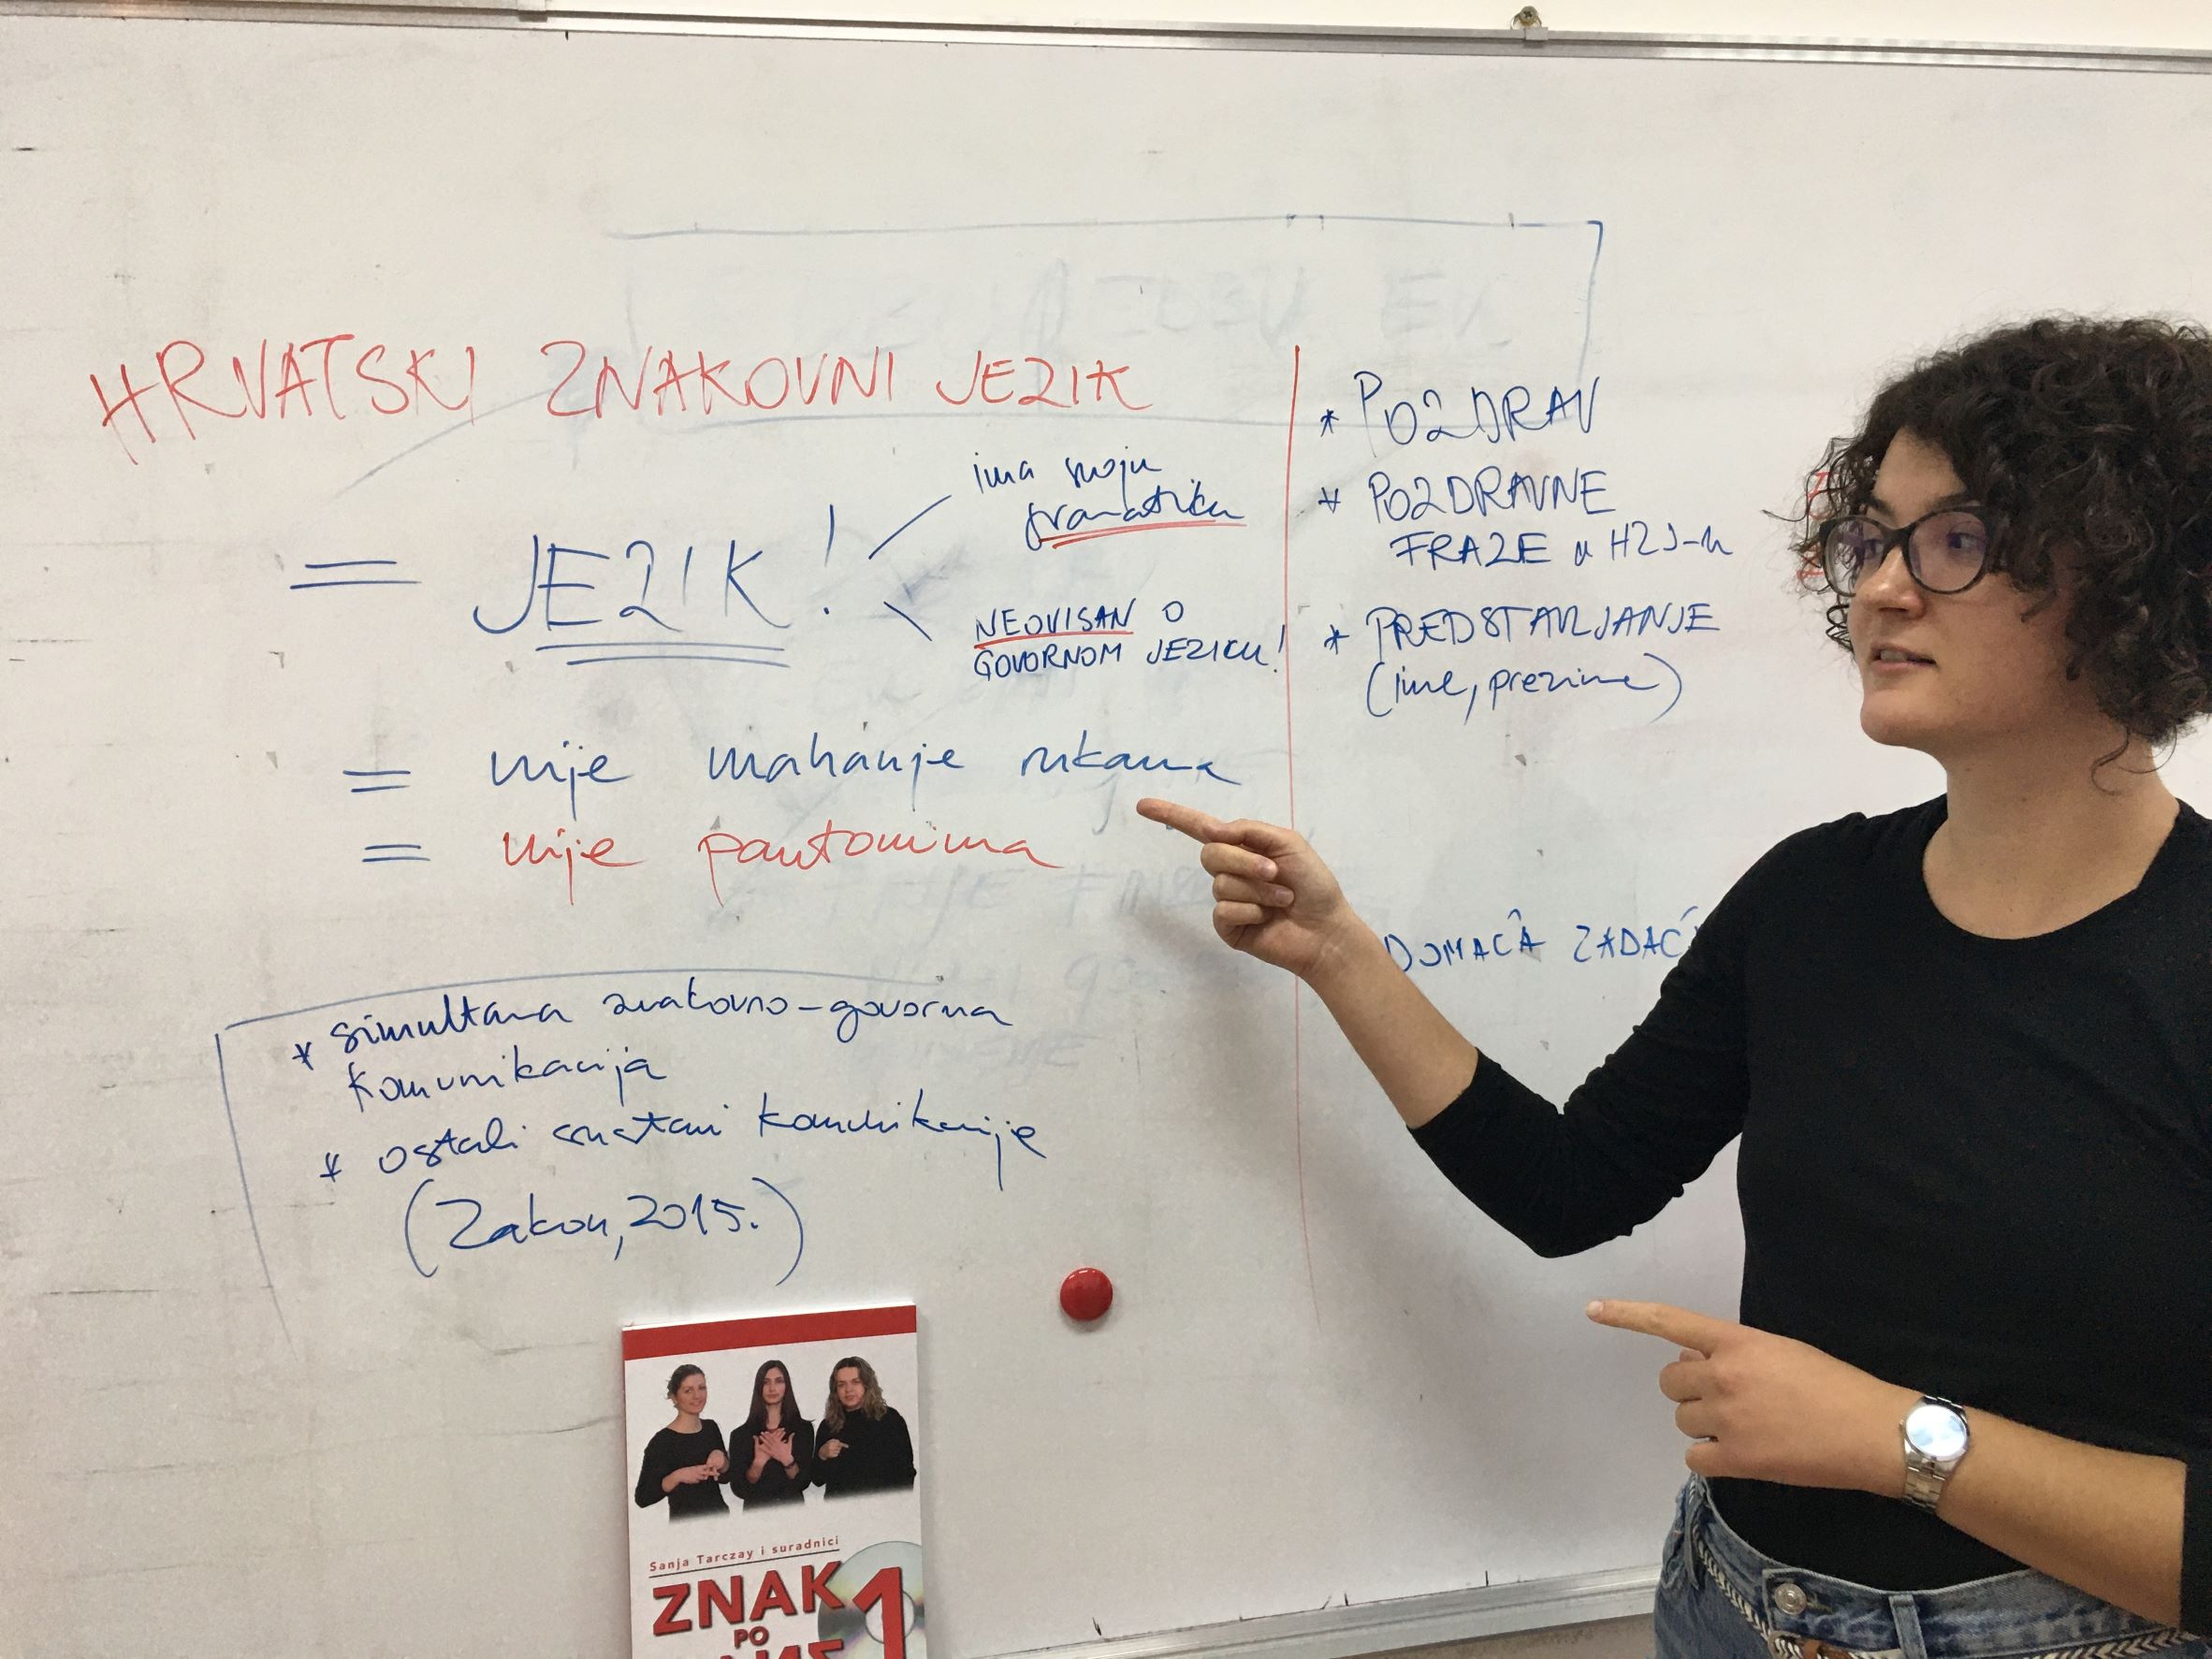 HRVATSKI ZNAKOVNI JEZIK
= JEZIK!
ima svoju
gramatiku
NEOVISAN O
GOVORNOM JEZIKU!
= nije mahanje rukama
= nije pantomima
* simultana znakovno-govorna
komunikacija
* ostali sustavi komunikacije
(Zakon, 2015.)
* POZDRAV
* POZDRAVNE
FRAZE u HZJ-u
* PREDSTAVLJANJE
(ime, prezime)
DOMAĆA ZADAĆ
Sanja Tarczay i suradnici
ZNAK
PO
1